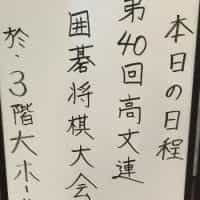 本日の日程
第40回高文連
囲碁将棋大会
於・3階大ホー